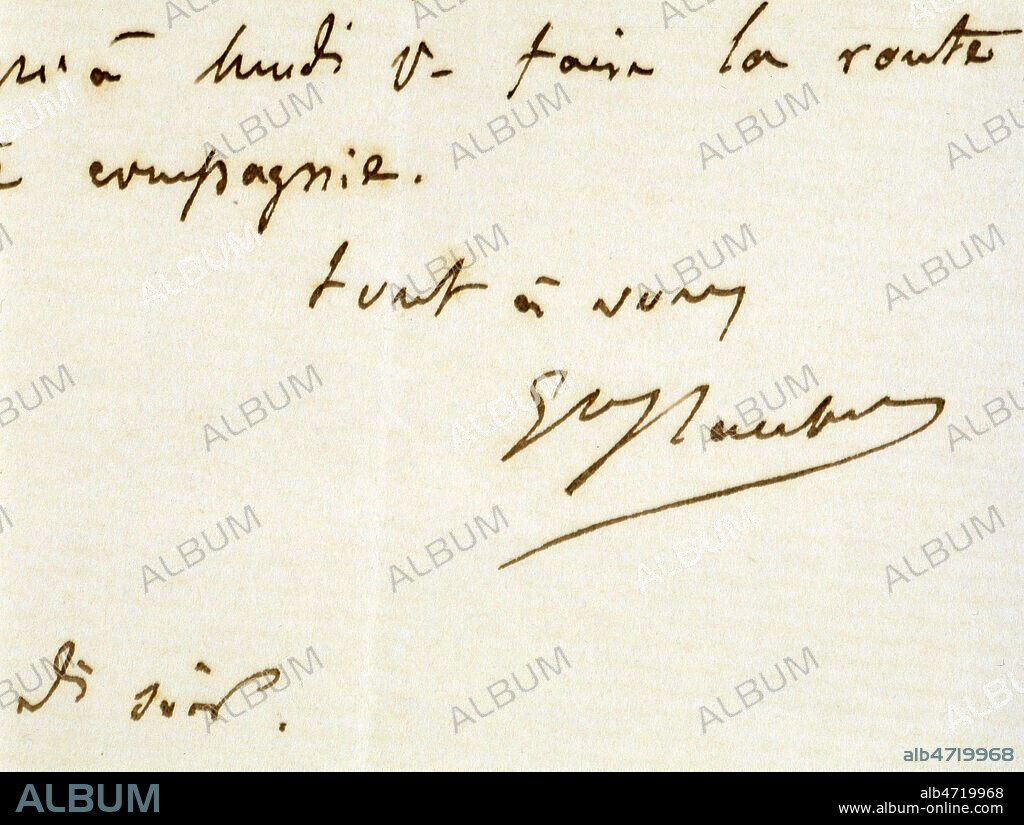 qu'à lundi pr faire la route
compagnie.
tout à vous
GveFlaubert
di soir.
ALBUM
alb4719968
ALBUM
alb4719968
www.album-online.com